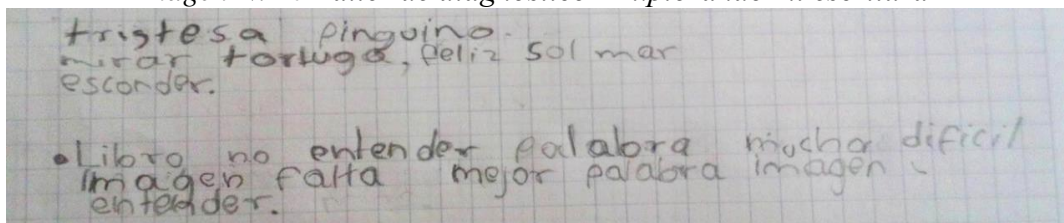 tristesa pinguino.
mirar tortuga, feliz sol mar
esconder.
• Libro no entender palabra mucha dificil
imagen falta mejor palabra imagen
entender.